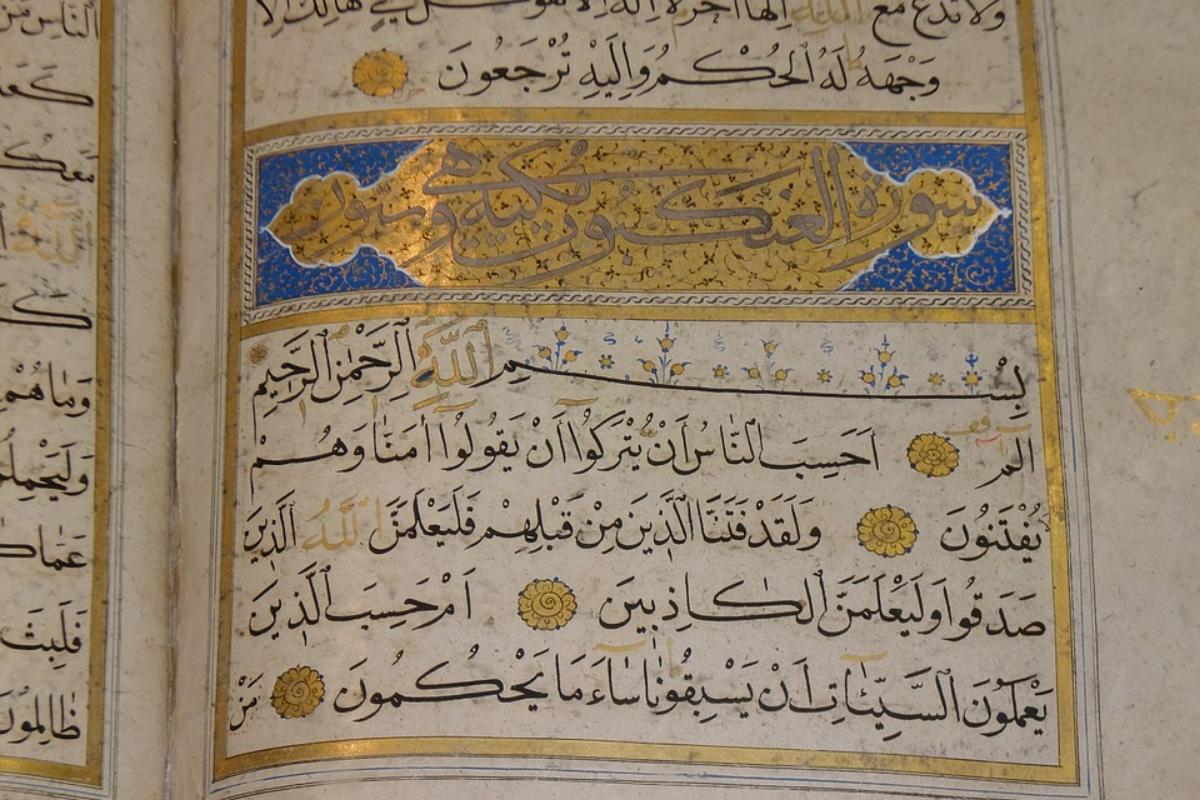 وَلَا تَدْعُ مَعَ اللَّهِ إِلَهًا آخَرَ لَا إِلَهَ إِلَّا هُوَ كُلُّ شَيْءٍ هَالِكٌ إِلَّا
وَجْهَهُ لَهُ الْحُكْمُ وَإِلَيْهِ تُرْجَعُونَ
سورة العنكبوت مكية وهي وستون
بِسْمِ اللَّهِ الرَّحْمَٰنِ الرَّحِيمِ
الم أَحَسِبَ النَّاسُ أَنْ يُتْرَكُوا أَنْ يَقُولُوا آمَنَّا وَهُمْ
لَا يُفْتَنُونَ وَلَقَدْ فَتَنَّا الَّذِينَ مِنْ قَبْلِهِمْ فَلَيَعْلَمَنَّ اللَّهُ الَّذِينَ
صَدَقُوا وَلَيَعْلَمَنَّ الْكَاذِبِينَ أَمْ حَسِبَ الَّذِينَ
يَعْمَلُونَ السَّيِّئَاتِ أَنْ يَسْبِقُونَا سَاءَ مَا يَحْكُمُونَ مَنْ
النَّاسِ مَنْ
مَعَكُمْ
اللَّهِ
وَمَا هُمْ
عَمَّا
فَلَبِثَ
ظَالِمُونَ